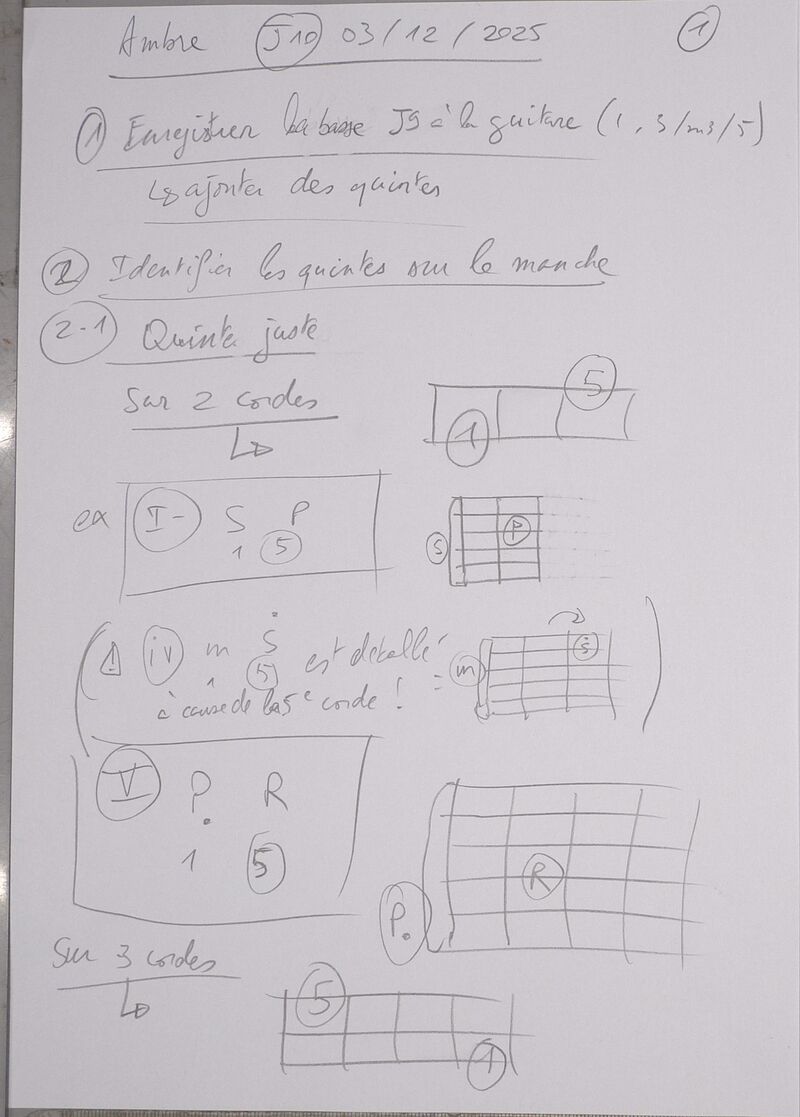 Ambre J10 03/12/2025 1
1 Enregistrer la basse J9 à la guitare (1, 3/m3/5)
↳ ajouter des quintes
2 Identifier les quintes sur le manche
2-1 Quinte juste
Sur 2 cordes
1 5
ex I- S P
1 5
S P
(⚠ iv m Ṡ est décallé
1 5
à cause de la 5e corde ! = m Ṡ )
V P̣ R
1 5
P. R
Sur 3 cordes
5 1